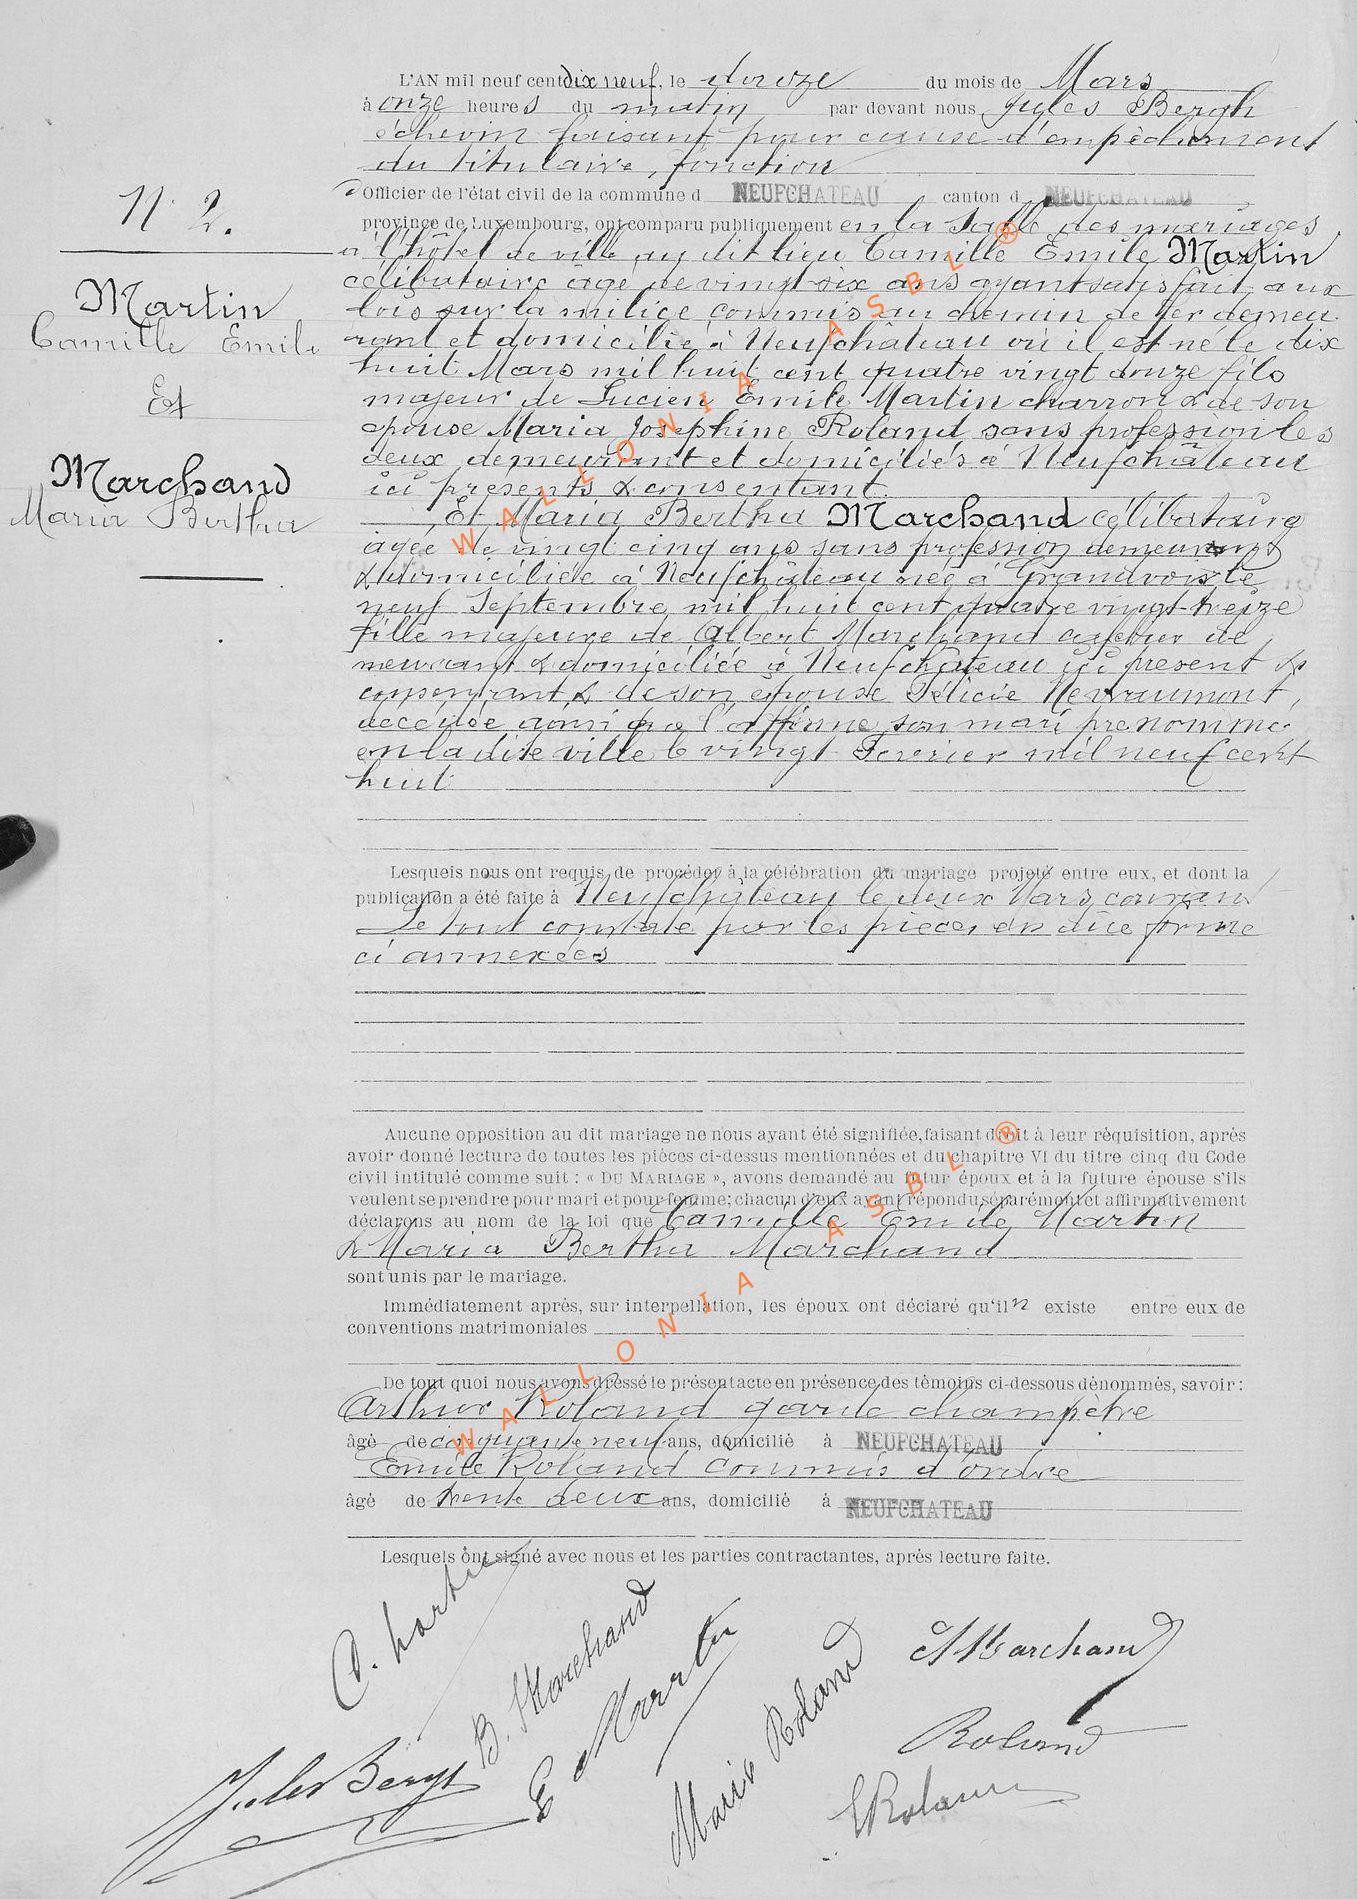 N. 2.
Martin
Camille Emile
Et
Marchand
Maria Bertha
L'AN mil neuf cent dix neuf, le douze du mois de Mars
à onze heures du matin par devant nous Jules Bergh
échevin faisant pour cause d'empèchement
du titulaire, fonction
d'Officier de l'état civil de la commune d NEUFCHATEAU canton d NEUFCHATEAU
province de Luxembourg, ont comparu publiquement en la Salle des mariages
à l'hôtel de ville au dit lieu Camille Emile Martin
célibataire âgé de vingt six ans ayant satisfait aux
lois sur la milice commis au chemin de fer demeu-
rant et domicilié à Neufchâteau où il est né le dix
huit Mars mil huit cent quatre vingt douze fils
majeur de Lucien Emile Martin charron & de son
épouse Maria Joséphine Roland sans profession les
deux demeurant et domiciliés à Neufchâteau
ici présents & consentant.
Et Maria Bertha Marchand célibataire
agée de vingt cinq ans sans profession demeurant
& domiciliée à Neufchâteau née à Grandvoir le
neuf Septembre mil huit cent quatre vingt treize
fille majeure de Albert Marchand de
meurant & domiciliée à Neufchâteau ici présent &
consentant & de son épouse Félicie Nevraumont,
décédée ainsi que l'affirme son mari prénommé
en la dite ville le vingt Fevrier mil neuf cent
huit
Lesquels nous ont requis de procéder à la célébration du mariage projeté entre eux, et dont la
publication a été faite à Neufchâteau le deux Mars courant
Le tout constaté par les pièces en due forme
ci annexées
Aucune opposition au dit mariage ne nous ayant été signifiée, faisant droit à leur réquisition, après
avoir donné lecture de toutes les pièces ci-dessus mentionnées et du chapitre VI du titre cinq du Code
civil intitulé comme suit : « DU MARIAGE », avons demandé au futur époux et à la future épouse s'ils
veulent se prendre pour mari et pour femme; chacun d'eux ayant répondu séparément et affirmativement
déclarons au nom de la loi que Camille Emile Martin
& Maria Bertha Marchand
sont unis par le mariage.
Immédiatement après, sur interpellation, les époux ont déclaré qu'il n existe entre eux de
conventions matrimoniales
De tout quoi nous avons dressé le présent acte en présence des témoins ci-dessous dénommés, savoir :
Arthur Roland garde champêtre
âgé de cinquante neuf ans, domicilié à NEUFCHATEAU
Emile Roland commis d'ordre
âgé de trente deux ans, domicilié à NEUFCHATEAU
Lesquels ont signé avec nous et les parties contractantes, après lecture faite.
C. Martin
B. Marchand
E Martin
Marie Roland
A Marchand
Roland
E Roland
Jules Bergh
WALLONIA ASBL ®
WALLONIA ASBL ®